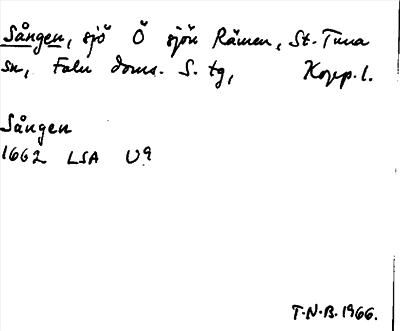 Sången, sjö Ö sjön Rämen, St. Tuna
sn, Falu doms. S. tg, Kopp. l.
Sången
1662 LSA U9
T.N.B. 1966.